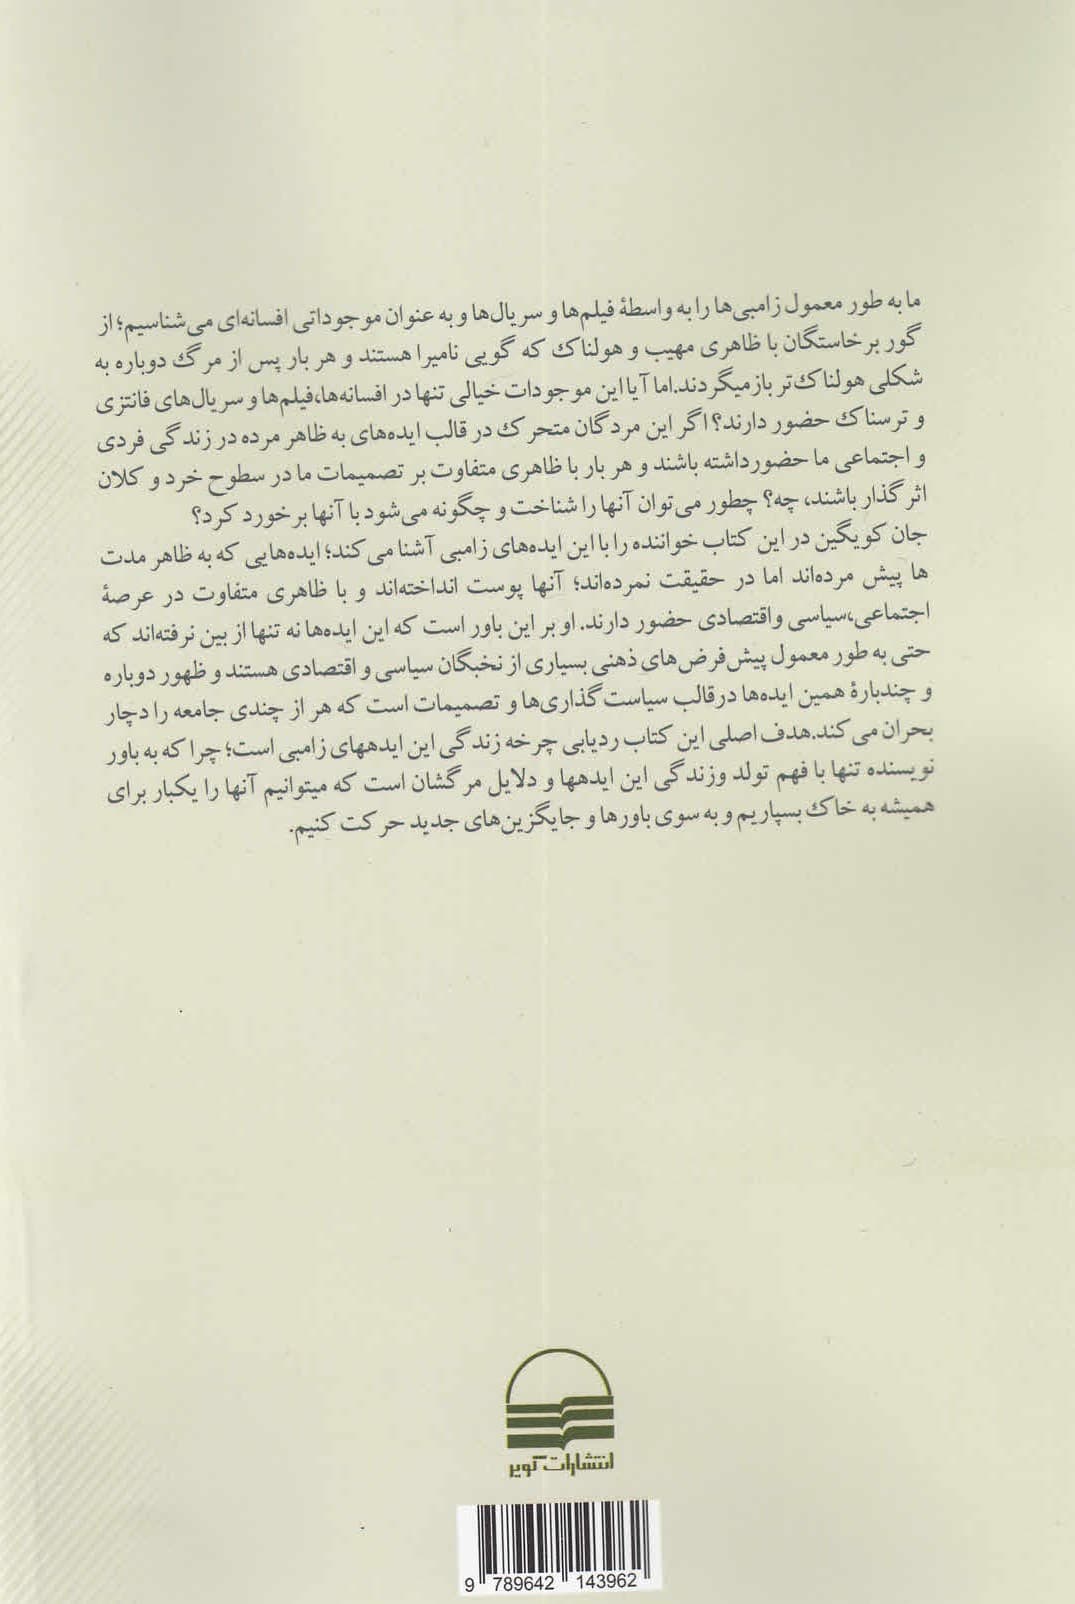 ما به طور معمول زامبی‌ها را به واسطهٔ فیلم‌ها و سریال‌ها و به عنوان موجوداتی افسانه‌ای می‌شناسیم؛ از
گور برخاستگان با ظاهری مهیب و هولناک که گویی نامیرا هستند و هر بار پس از مرگ دوباره به
شکلی هولناک‌تر بازمیگردند.اما آیا این موجودات خیالی تنها در افسانه‌ها،فیلم‌ها و سریال‌های فانتزی
و ترسناک حضور دارند؟ اگر این مردگان متحرک در قالب ایده‌های به ظاهر مرده در زندگی فردی
و اجتماعی ما حضورداشته باشند و هر بار با ظاهری متفاوت بر تصمیمات ما در سطوح خرد و کلان
اثرگذار باشند، چه؟ چطور می‌توان آنها را شناخت و چگونه می‌شود با آنها برخورد کرد؟
جان کویگین در این کتاب خواننده را با این ایده‌های زامبی آشنا می‌کند؛ ایده‌هایی که به ظاهر مدت
ها پیش مرده‌اند اما در حقیقت نمرده‌اند؛ آنها پوست انداخته‌اند و با ظاهری متفاوت در عرصهٔ
اجتماعی،سیاسی واقتصادی حضور دارند. او بر این باور است که این ایده‌ها نه تنها از بین نرفته‌اند که
حتی به طور معمول پیش‌فرض‌های ذهنی بسیاری از نخبگان سیاسی و اقتصادی هستند و ظهور دوباره
و چندبارهٔ همین ایده‌ها درقالب سیاست‌گذاری‌ها و تصمیمات است که هر از چندی جامعه را دچار
بحران می‌کند.هدف اصلی این کتاب ردیابی چرخه زندگی این ایدههای زامبی است؛ چرا که به باور
نویسنده تنها با فهم تولد وزندگی این ایدهها و دلایل مرگشان است که میتوانیم آنها را یکبار برای
همیشه به خاک بسپاریم و به سوی باورها و جایگزین‌های جدید حرکت کنیم.
انتشارات کویر
9 789642 143962